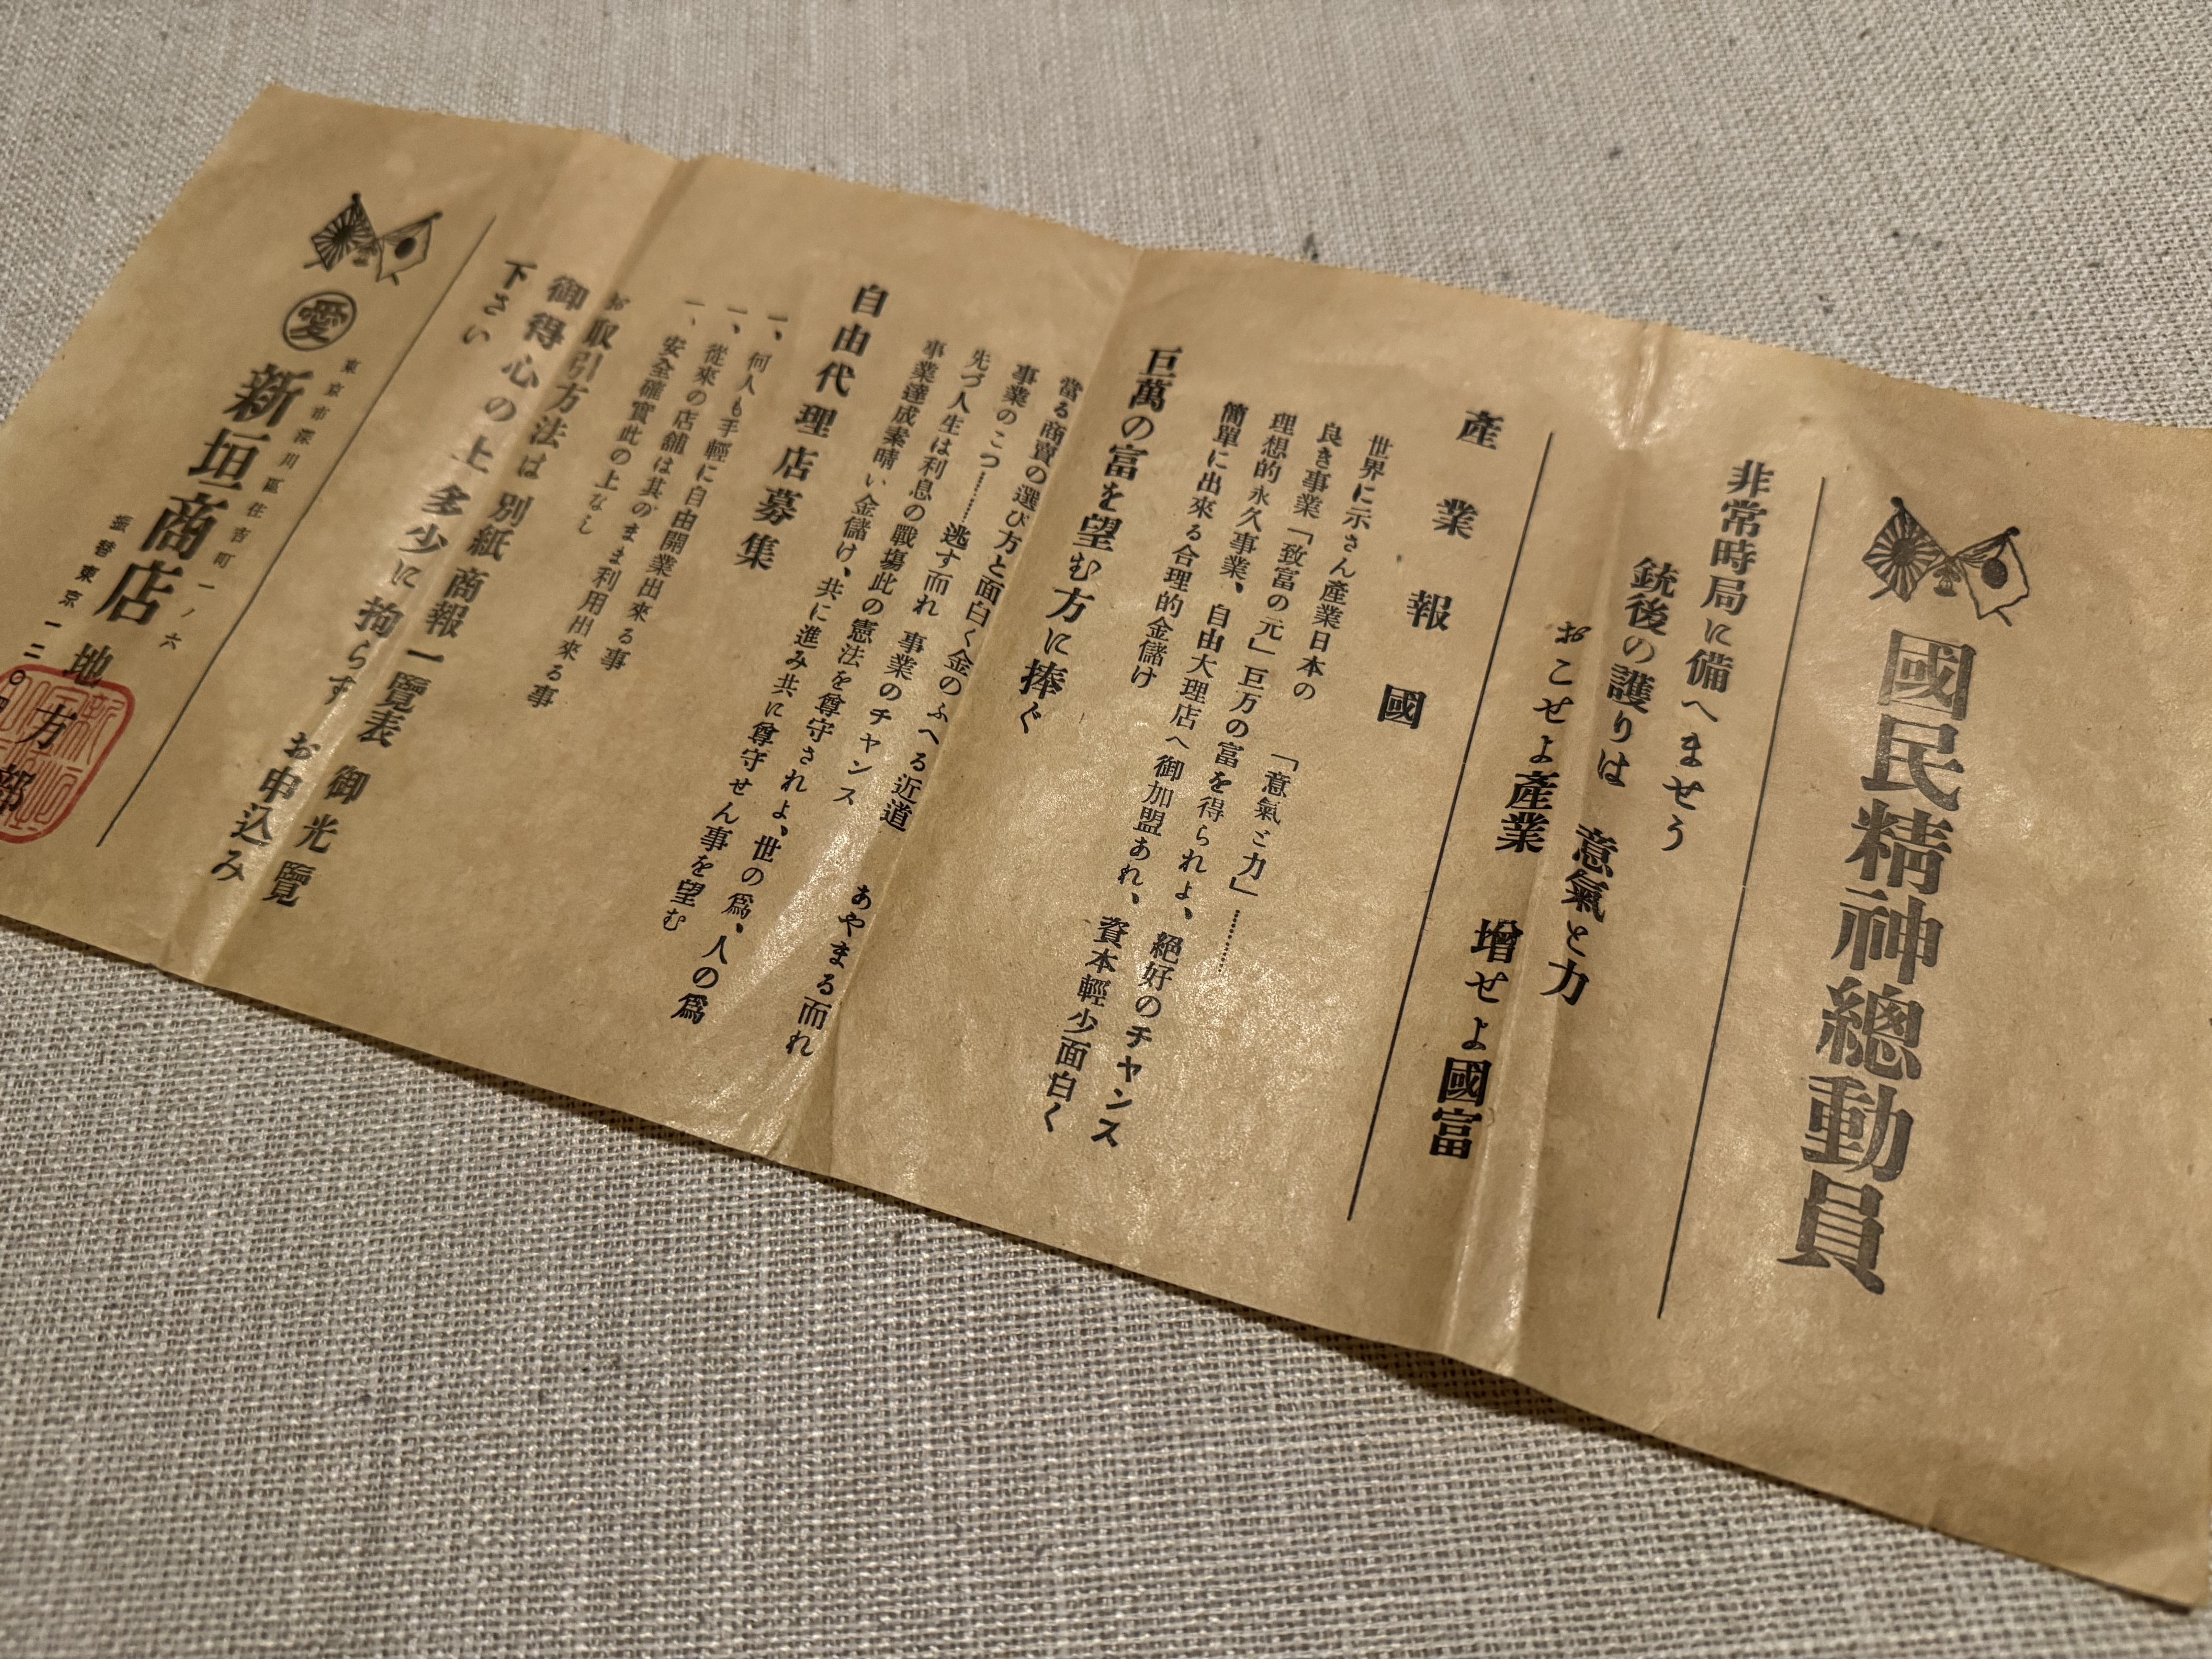 國民精神總動員
非常時局に備へませう
銃後の護りは 意氣と力
おこせよ產業 增せよ國富
產業報國
世界に示さん產業日本の 「意氣と力」………
良き事業「致富の元」巨万の富を得られよ、絕好のチヤンス
理想的永久事業、自由大理店へ御加盟あれ、資本輕少面白く
簡單に出來る合理的金儲け
巨萬の富を望む方に捧ぐ
當る商賣の選び方と面白く金のふへる近道
事業のこつ……逃す而れ 事業のチヤンス あやまる而れ
先づ人生は利息の戰場此の憲法を尊守されよ、世の爲、人の爲
事業達成素晴い金儲け、共に進み共に尊守せん事を望む
自由代理店募集
一、何人も手輕に自由開業出來る事
一、從來の店舖は其のまま利用出來る事
一、安全確實此の上なし
お取引方法は別紙商報一覽表御光覽
御得心の上多少に拘らすお申込み
下さい
東京市深川區住吉町一ノ六
愛 新垣商店 地方部
振替東京一二〇